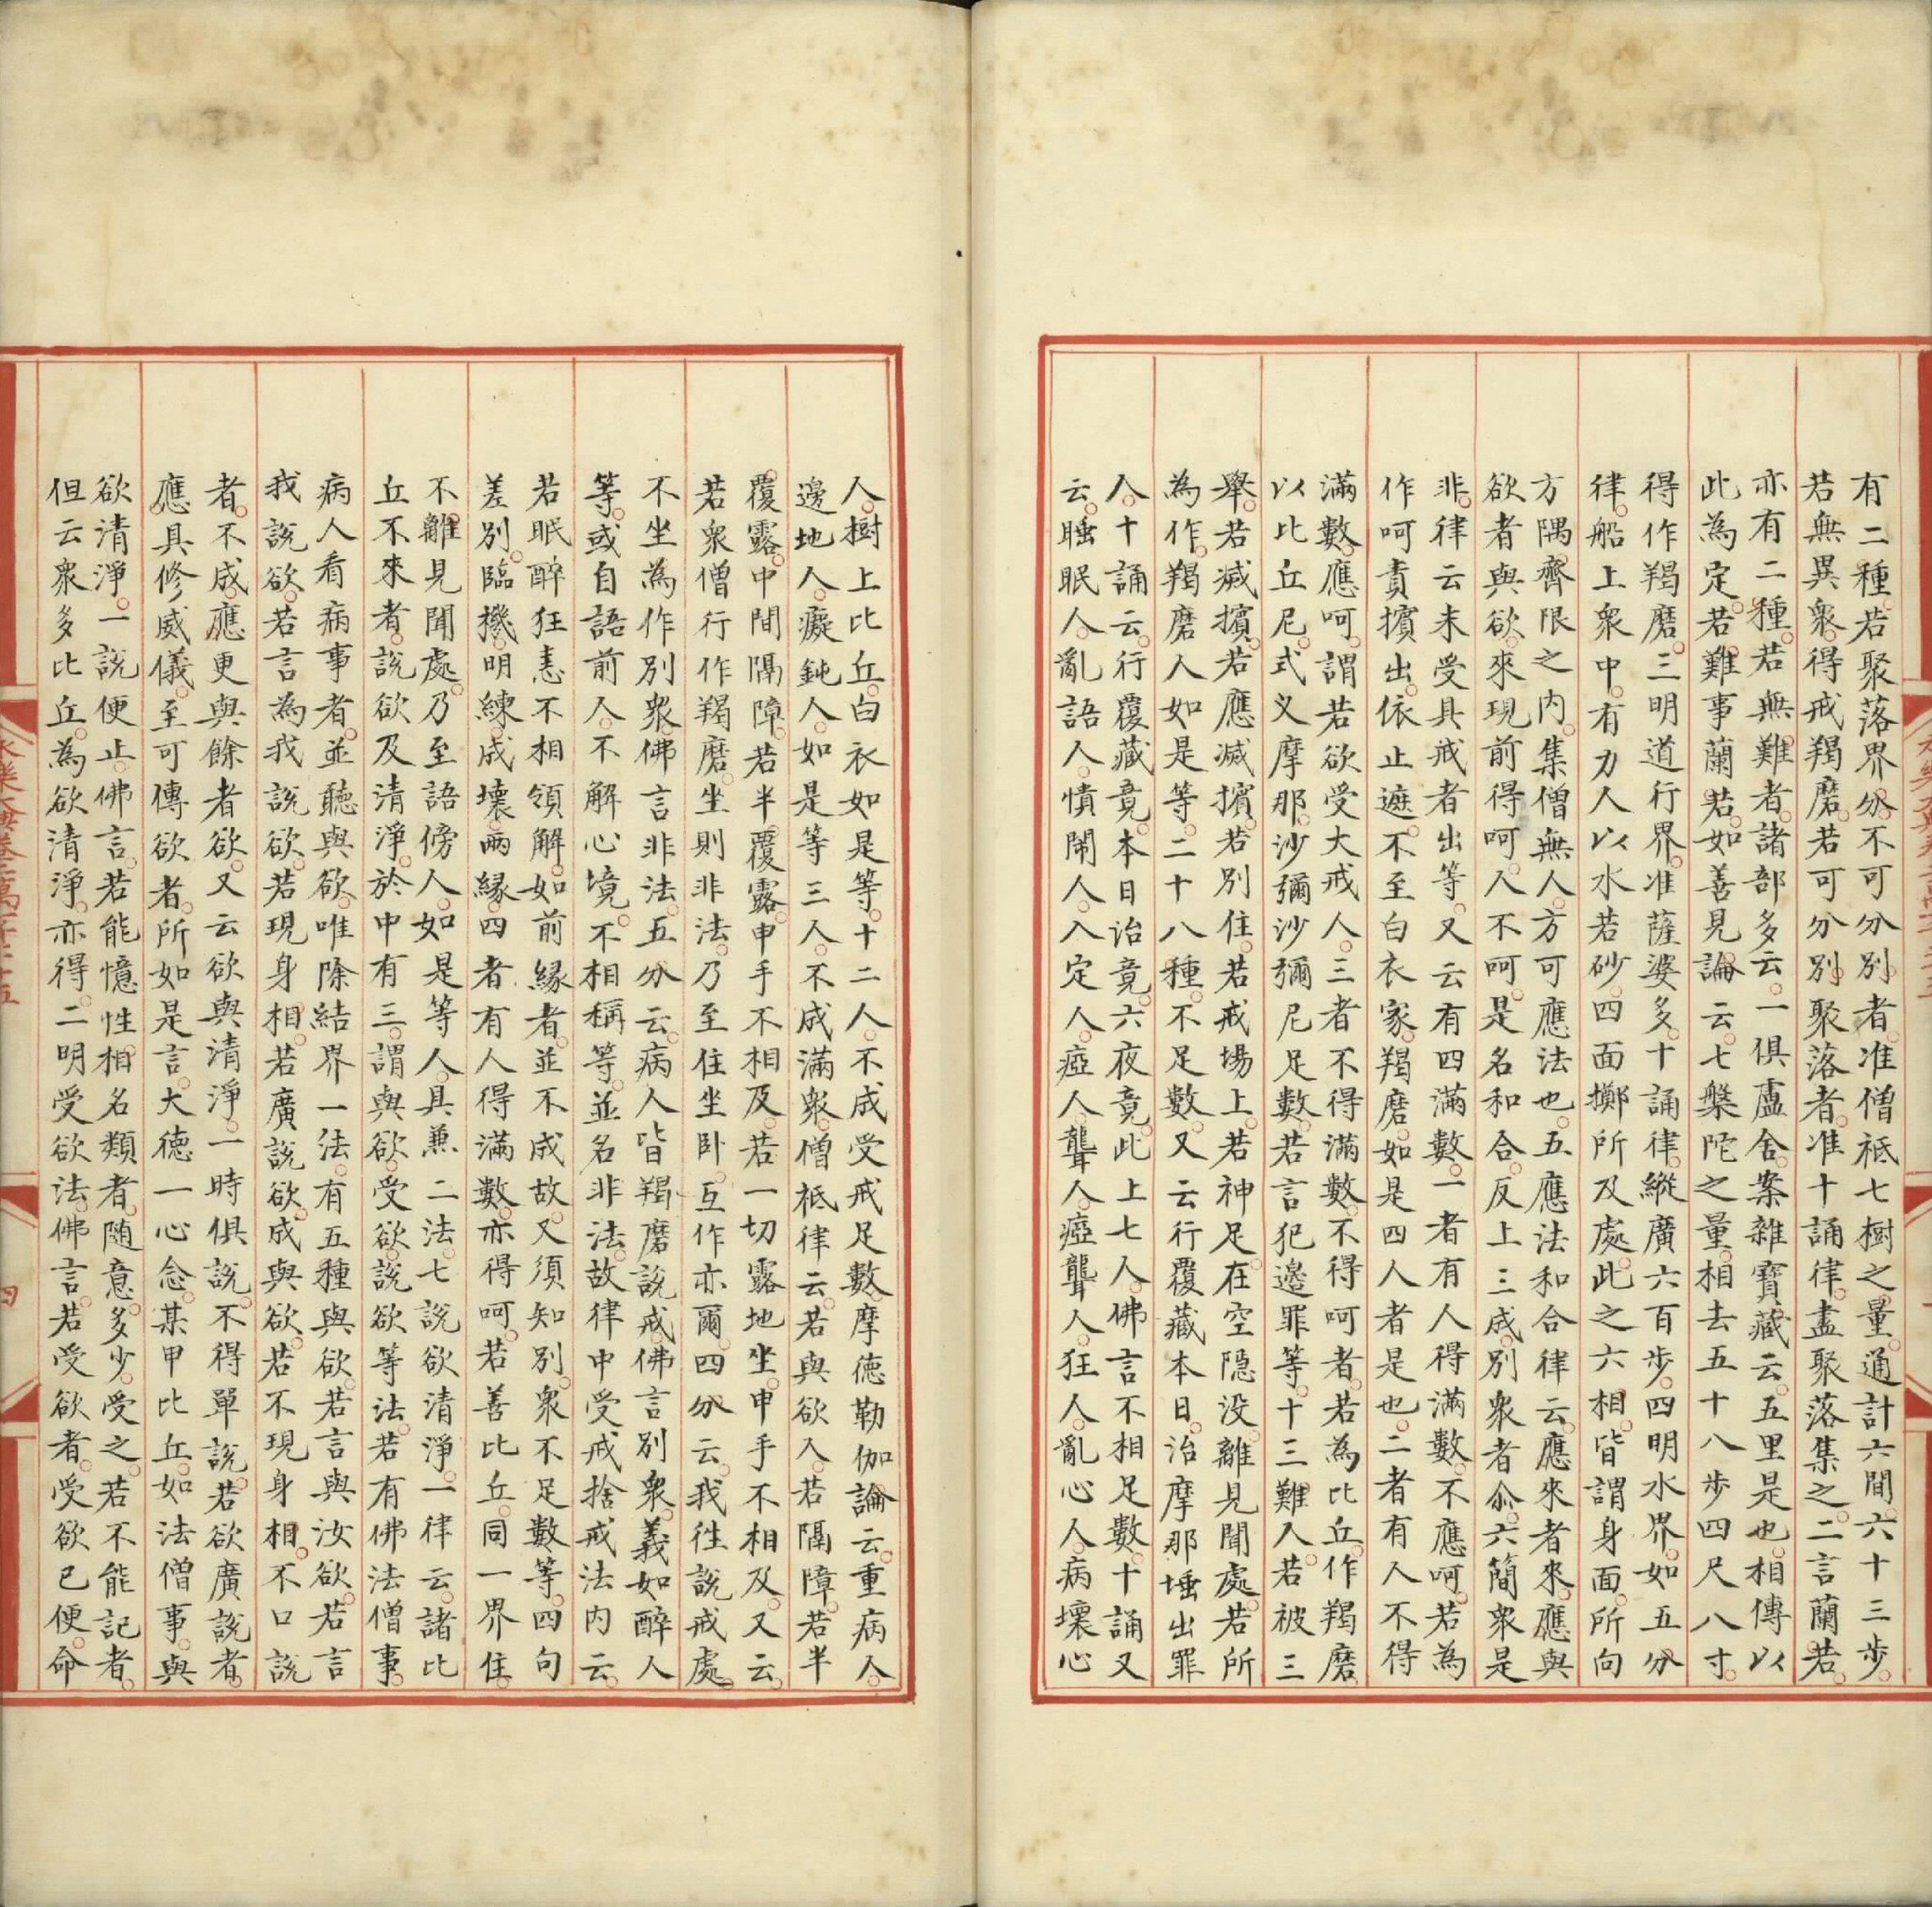 有二種若聚落界分不可分別者准僧祇七樹之量通計六間六十三步
若無異衆得戒羯磨若可分別聚落者准十誦律盡聚落集之二言蘭若
亦有二種若無難者諸部多云一俱盧舍案雜寶藏云五里是也相傳以
此為定若難事蘭若如善見論云七槃陀之量相去五十八步四尺八寸
得作羯磨三明道行界准薩婆多十誦律縱廣六百步四明水界如五分
律船上衆中有力人以水若砂四面擲所及處此之六相皆謂身面所向
方隅齊限之內集僧無人方可應法也五應法和合律云應來者來應與
欲者與欲來現前得呵人不呵是名和合反上三成別衆者六簡衆是
非律云未受具戒者出等又云有四滿數一者有人得滿數不應呵若為
作呵責擯出依止遮不至白衣家羯磨如是四人者是也二者有人不得
滿數應呵謂若欲受大戒人三者不得滿數不得呵者若為比丘作羯磨
以比丘尼式叉摩那沙彌沙彌尼足數若言犯邊罪等十三難人若被三
舉若滅擯若應滅擯若別住若戒場上若神足在空隱没離見聞處若所
為作羯磨人如是等二十八種不足數又云行覆藏本日治摩那埵出罪
人十誦云行覆藏竟本日治竟六夜竟此上七人佛言不相足數十誦又
云睡眠人亂語人憒鬧人入定人瘂人聾人瘂聾人狂人亂心人病壞心
人樹上比丘白衣如是等十二人不成受戒足數摩德勒伽論云重病人
邊地人癡鈍人如是等三人不成滿衆僧祇律云若與欲人若隔障若半
覆露中間隔障若半覆露申手不相及若一切露地坐申手不相及又云
若衆僧行作羯磨坐則非法乃至住坐卧互作亦爾四分云我徃說戒處
不坐為作別衆佛言非法五分云病人皆羯磨說戒佛言別衆義如醉人
等或自語前人不解心境不相稱等並名非法故律中受戒捨戒法内云
若眠醉狂恚不相領解如前緣者並不成故又須知別衆不足數等四句
差別臨機明練成壞兩緣四者有人得滿數亦得呵若善比丘同一界住
不離見聞處乃至語傍人如是等人具兼二法七說欲清淨一律云諸比
丘不來者說欲及清淨於中有三謂與欲受欲說欲等法若有佛法僧事
病人看病事者並聽與欲唯除結界一法有五種與欲若言與汝欲若言
我說欲若言為我說欲若現身相若廣說欲成與欲若不現身相不口說
者不成應更與餘者欲又云欲與清淨一時俱說不得單說若欲廣說者
應具修威儀至可傳欲者所如是言大德一心念某甲比丘如法僧事與
欲清淨一說便止佛言若能憶性相名類者隨意多少受之若不能記者
但云衆多比丘為欲清淨亦得二明受欲法佛言若受欲者受欲已便命